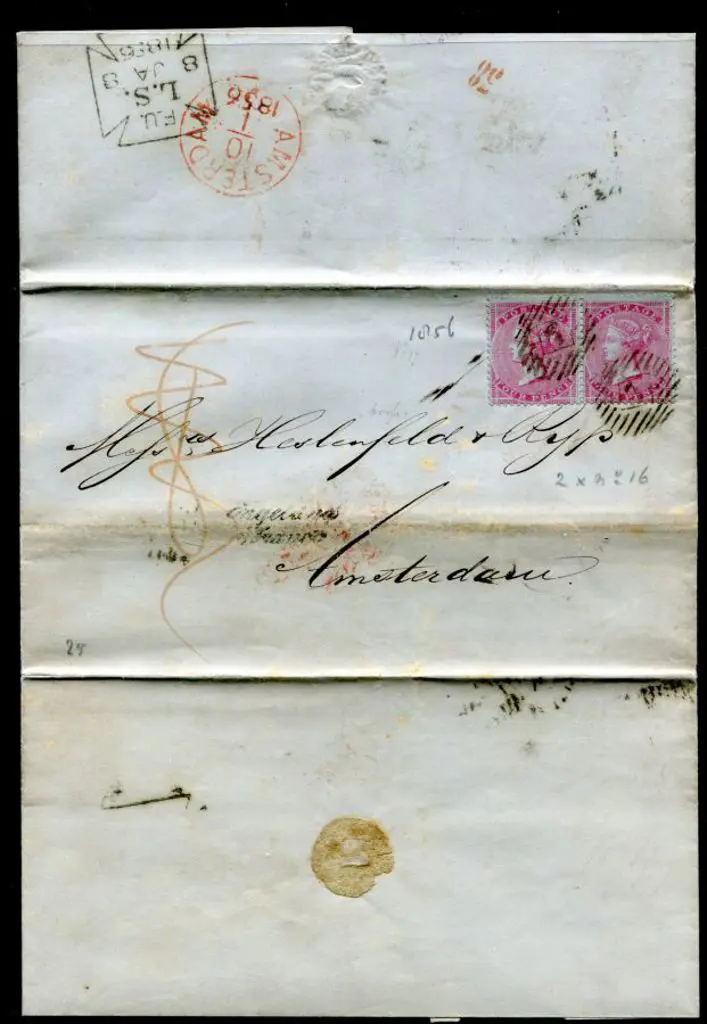 F.U.
L.S.
8 JA 8
1856
AMSTERDAM
10
1
1856
1856
POSTAGE
FOUR PENCE
POSTAGE
FOUR PENCE
Messrs Heslenfeld & Ryp
2 x no 16
Amsterdam